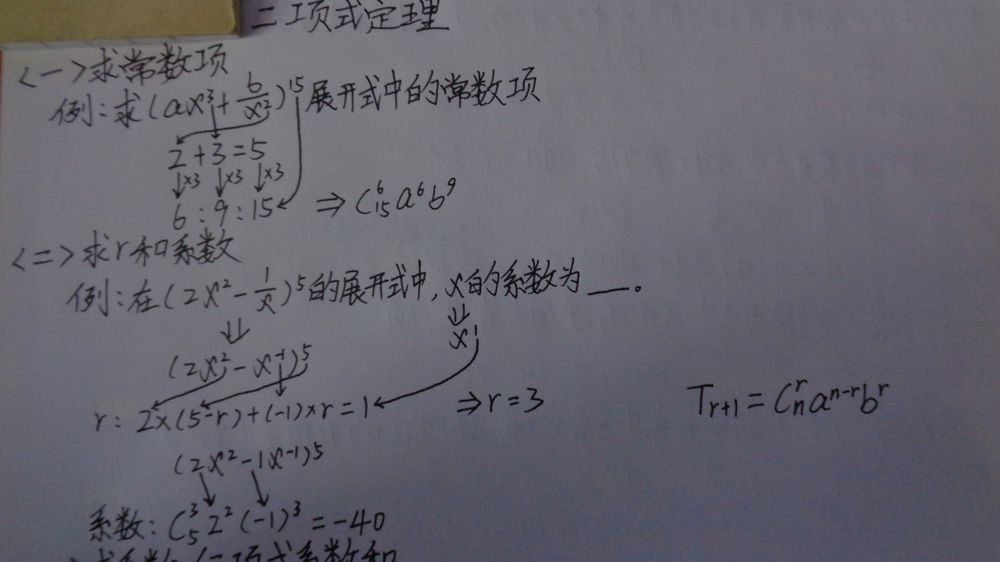 二项式定理
<一>求常数项
例:求(ax³+b/x²)¹⁵展开式中的常数项
2+3=5
↓×3 ↓×3 ↓×3
6:9:15 ⇒C₁₅⁶a⁶b⁹
<二>求r和系数
例:在(2x²-1/x)⁵的展开式中,x的系数为__。
⇓ ⇓
x¹
(2x²-x⁻¹)⁵
r:2×(5-r)+(-1)×r=1 ⇒r=3 Tᵣ₊₁=Cₙʳaⁿ⁻ʳbʳ
(2x²-1x⁻¹)⁵
系数:C₅³2²(-1)³=-40